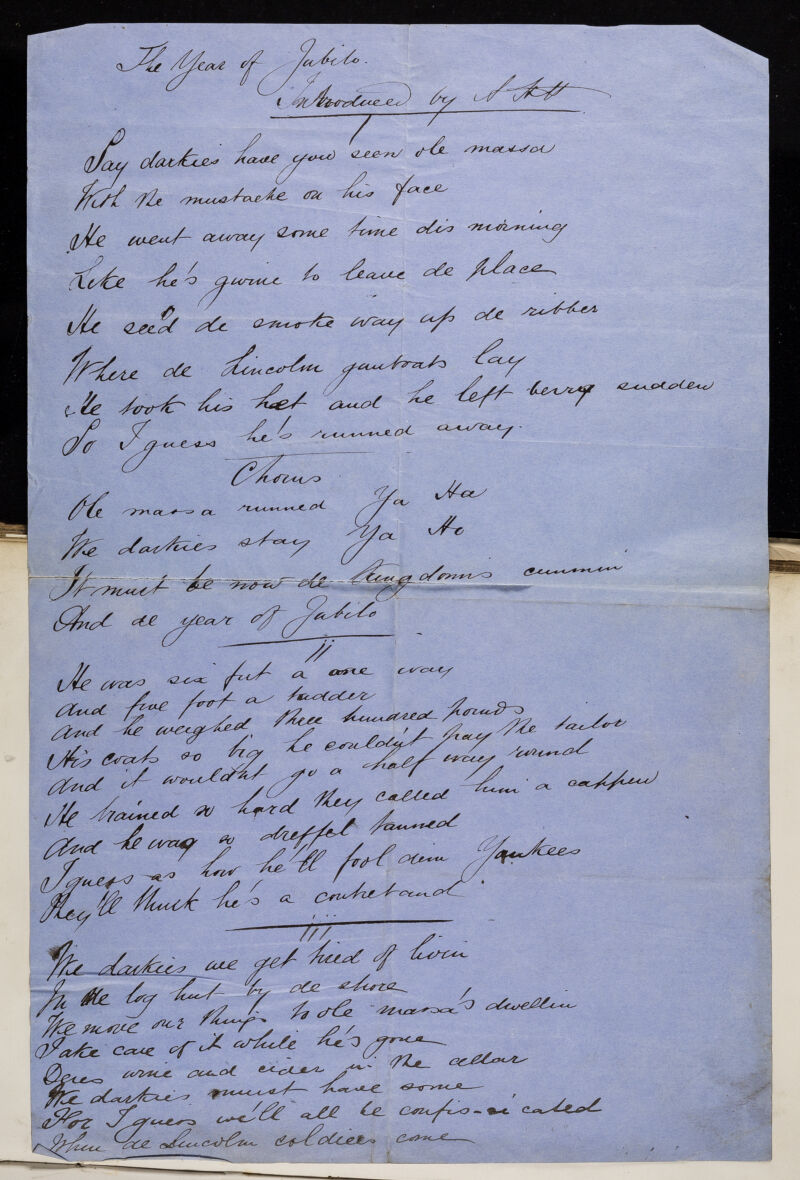 The Year of Jubilo.
Introduced by
I
Say darkies have you seen ole massa
With the mustache on his face
He went away some time dis morning
Like he's gwine to leave de place
He see'd de smoke way up de ribber
Where de Lincolm gunboats lay
He took his hat and he left berry sudden
So I guess he's runned away.
Chorus
Ole massa runned Ya Ha
We darkies stay Ya Ho
It must be now de Kingdom's cummin
And de year of Jubilo
II
He was six fut a one way
And five foot a tudder
And he weighed three hundred pounds
His coats so big he couldn't pay the tailor
And it wouldnt go a half way round
He trained so hard they called him a cappen
And he was so dreffel tanned
I guess as how he'll fool dem Yankees
They'll think he's a contreband.
III
We darkies we get tired of livin
In the log hut by de shore
We move our things to ole massa's dwellin
Take care of it while he's gone
Deres wine and cider in the cellar
We darkies must have some
For I guess we'll all be confis-cated
When de Lincolm soldiers come